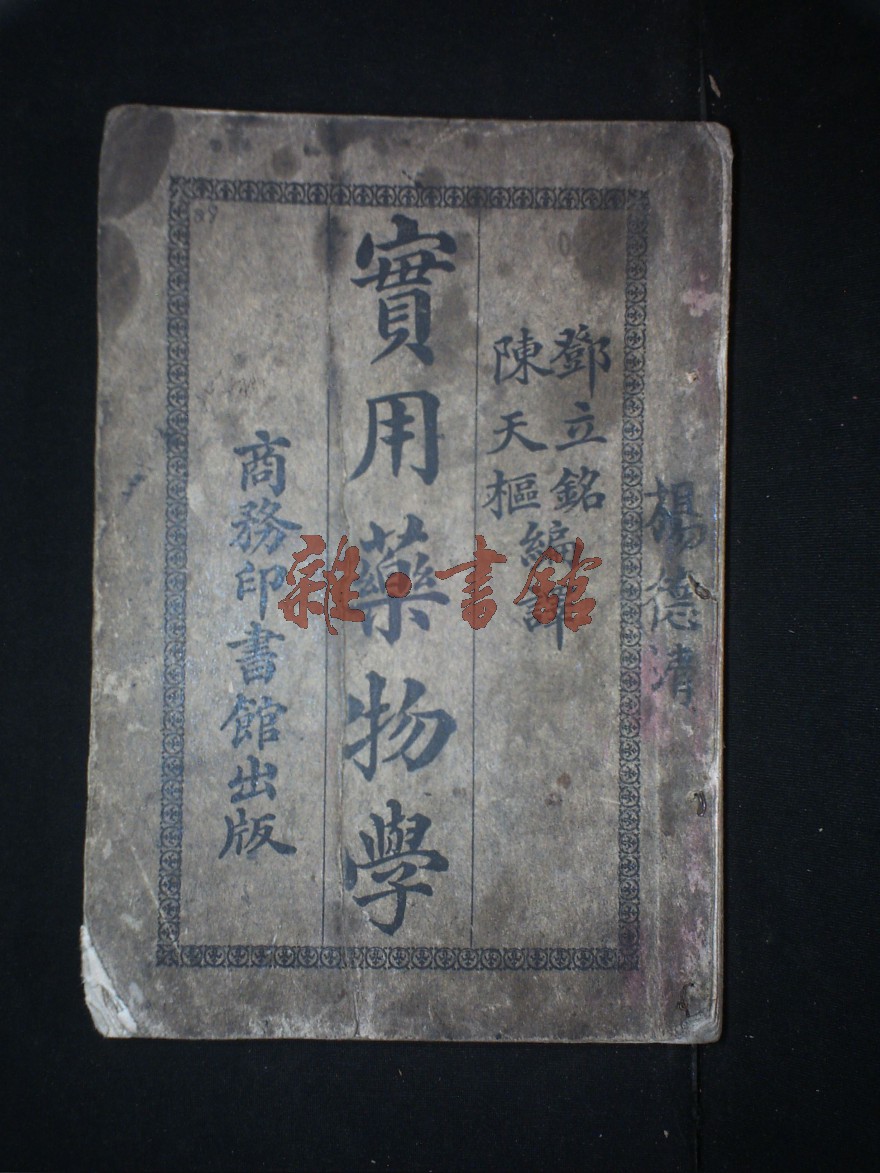 楊德清
鄧立銘
陳天樞
編譯
實用藥物學
商務印書館出版
雜·書館